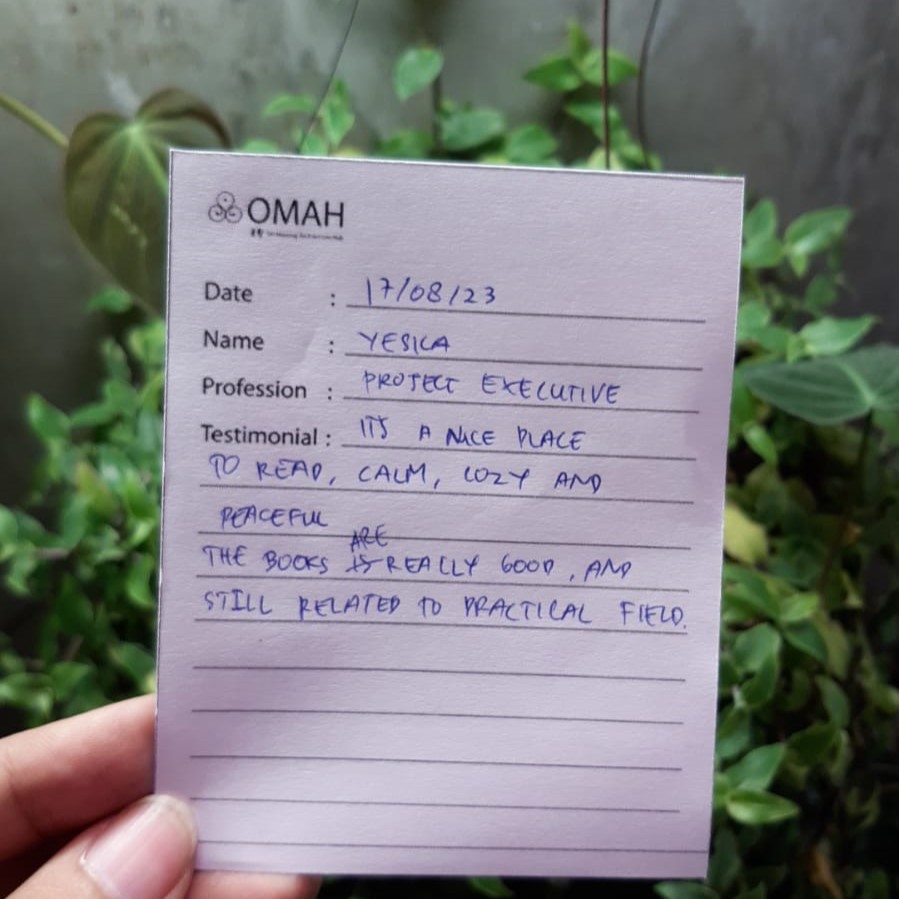 OMAH
Date : 17/08/23
Name : YESICA
Profession : PROJECT EXECUTIVE
Testimonial : ITS A NICE PLACE
TO READ, CALM, COZY AND
PEACEFUL
ARE
THE BOOKS IS REALLY GOOD, AND
STILL RELATED TO PRACTICAL FIELD.